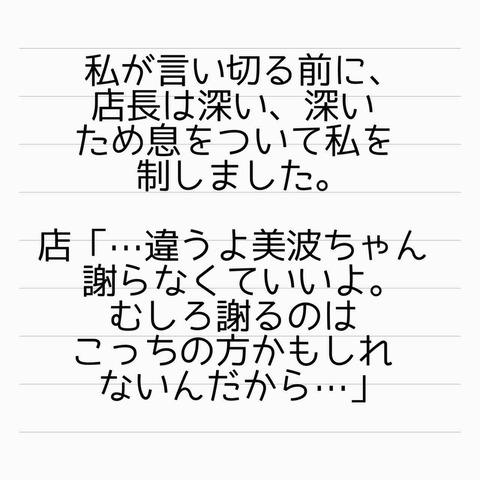 私が言い切る前に、
店長は深い、深い
ため息をついて私を
制しました。
店「…違うよ美波ちゃん
謝らなくていいよ。
むしろ謝るのは
こっちの方かもしれ
ないんだから…」